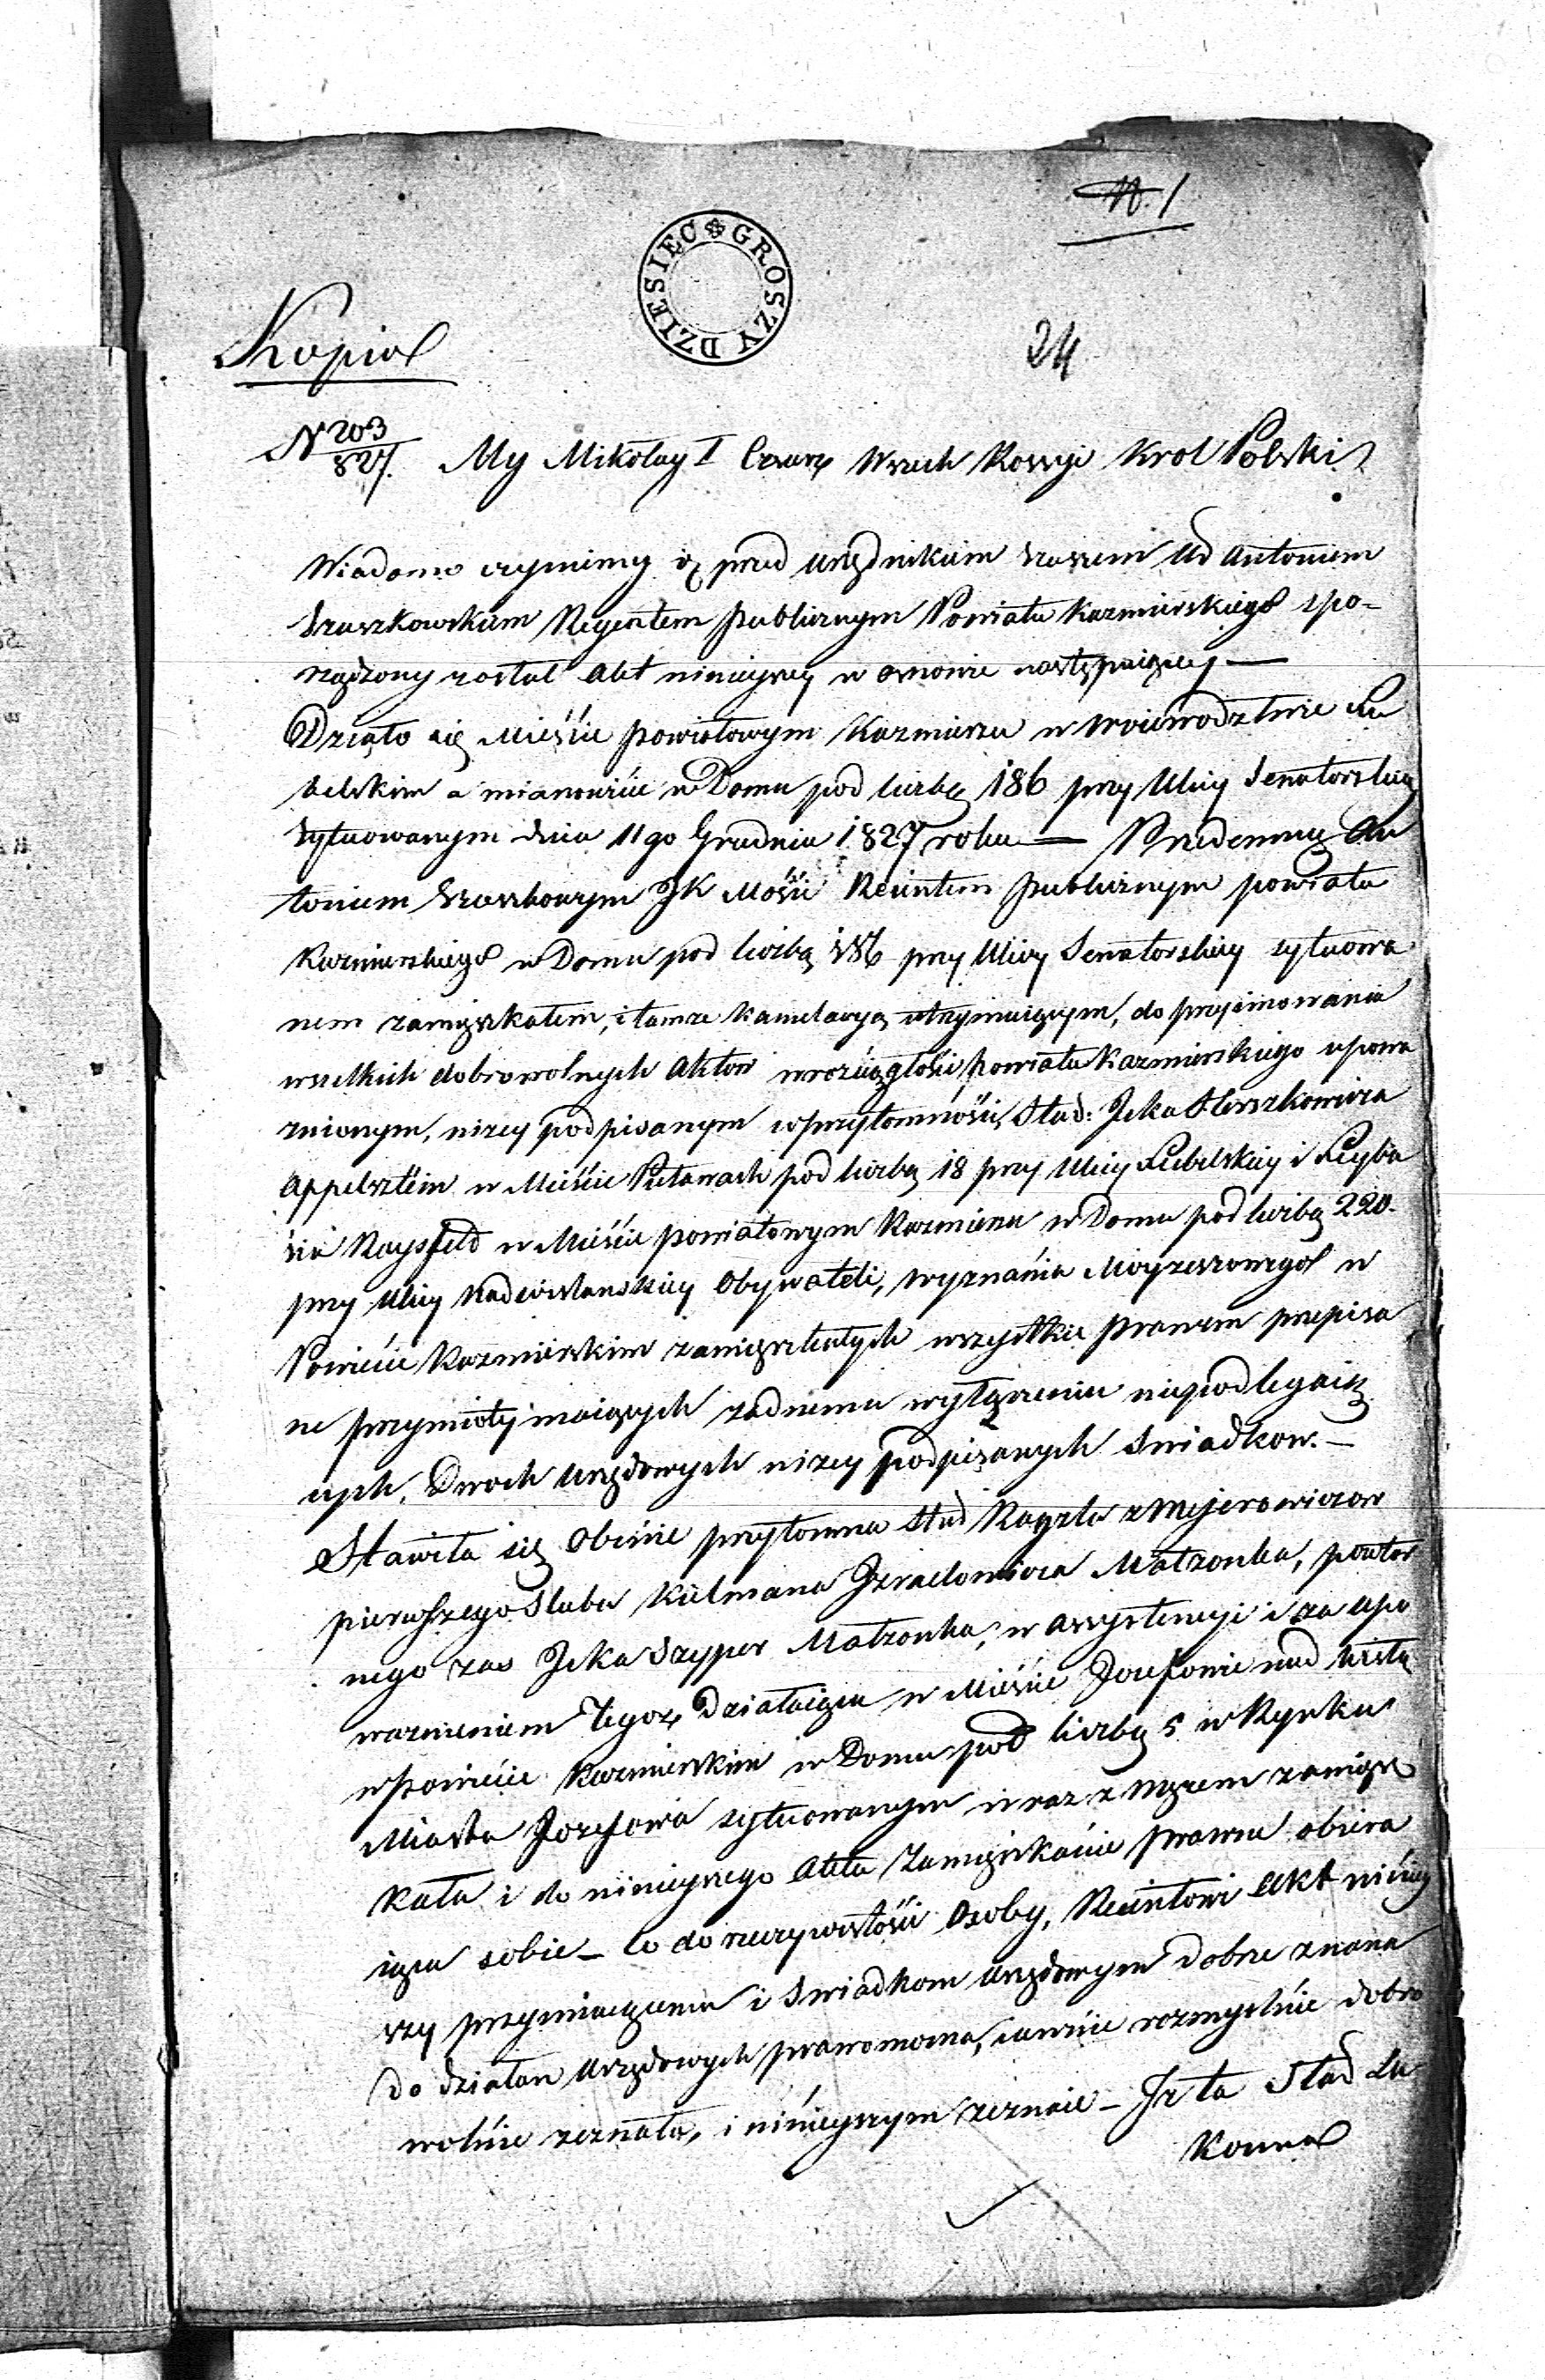 N. 1
DZIESIĘC GROSZY
Kopia
24
N 203/827. My Mikołay I Cesarz Wszech Rossyi Krol Polski
Wiadomo czynimy iż przed Urzędnikiem Naszym Ad Antonim
Regentem publicznym Powiatu Kazmierskiego spo-
rządzony został Akt ninieyszey w osnowie następuiącey —
Działo się Mieście powiatowym Kazmierzu w Woiewodztwie Lu
belskim a mianowicie w Domu pod liczbą 186 przy Ulicy Senatorskiey
sytuowanym dnia 11go Grudnia 1827 roku — Przedemną An
tonim JK Mości Reientem publicznym powiatu
Kazmierskiego w Domu pod liczbą 186 przy Ulicy Senatorskiey sytuowa
nem zamięszkałem, i tamze kancelaryą utrzymuiącym, do przyimowania
wszelkich dobrowolnych Aktow w rozciągłości powiatu Kazmierskiego upowa
znionym, nizey podpisanym w przytomności Stad: Jcka Herszkowicza
Appelsztein w Mieście Puławach pod liczbą 18 przy Ulicy Lubelskiey i Leyba
sia Raysfeld w Mieście powiatowym Kazmierzu w Domu pod liczbą 220.
przy Ulicy Nadwislanskiey Obywateli, wyznania Moyzeszowego w
Powiecie Kazmierskim zamięszkałych wszystkie prawem przepisa
ne przymioty maiących zadnemu wyłączeniu niepodlegaią
cych, Dwoch Urzędowych nizey podpisanych Swiadkow. —
Stawiła się Obecnie przytomna Stad Rayzla z Mejerowiczow
pierwszego Slubu Kielmana Jzraelowicza Małzonka, powtor
nego zas Jcka Szyper Małzonka, w assystencyi i za upo
waznieniem Tegoz Działaiąca w Mieście Jozefowie nad Wisłą
w powiecie Kazmierskim w Domu pod liczbą 5 w Rynku
Miasta Jozefowa sytuowanym wraz z Męzem zamięsz
kała i do ninieyszego Aktu Zamięszkanie prawne obiera
iąca sobie — Co do rzeczywistości Osoby, Reientowi Akt niniey
szy przyimuiącemu i Swiadkom Urzędowym dobrze znana
do działan Urzędowych prawomocna, iawnie rozmyslnie dobro
wolnie zeznała, i ninieyszym zeznaie — Jz ta Stad Lu